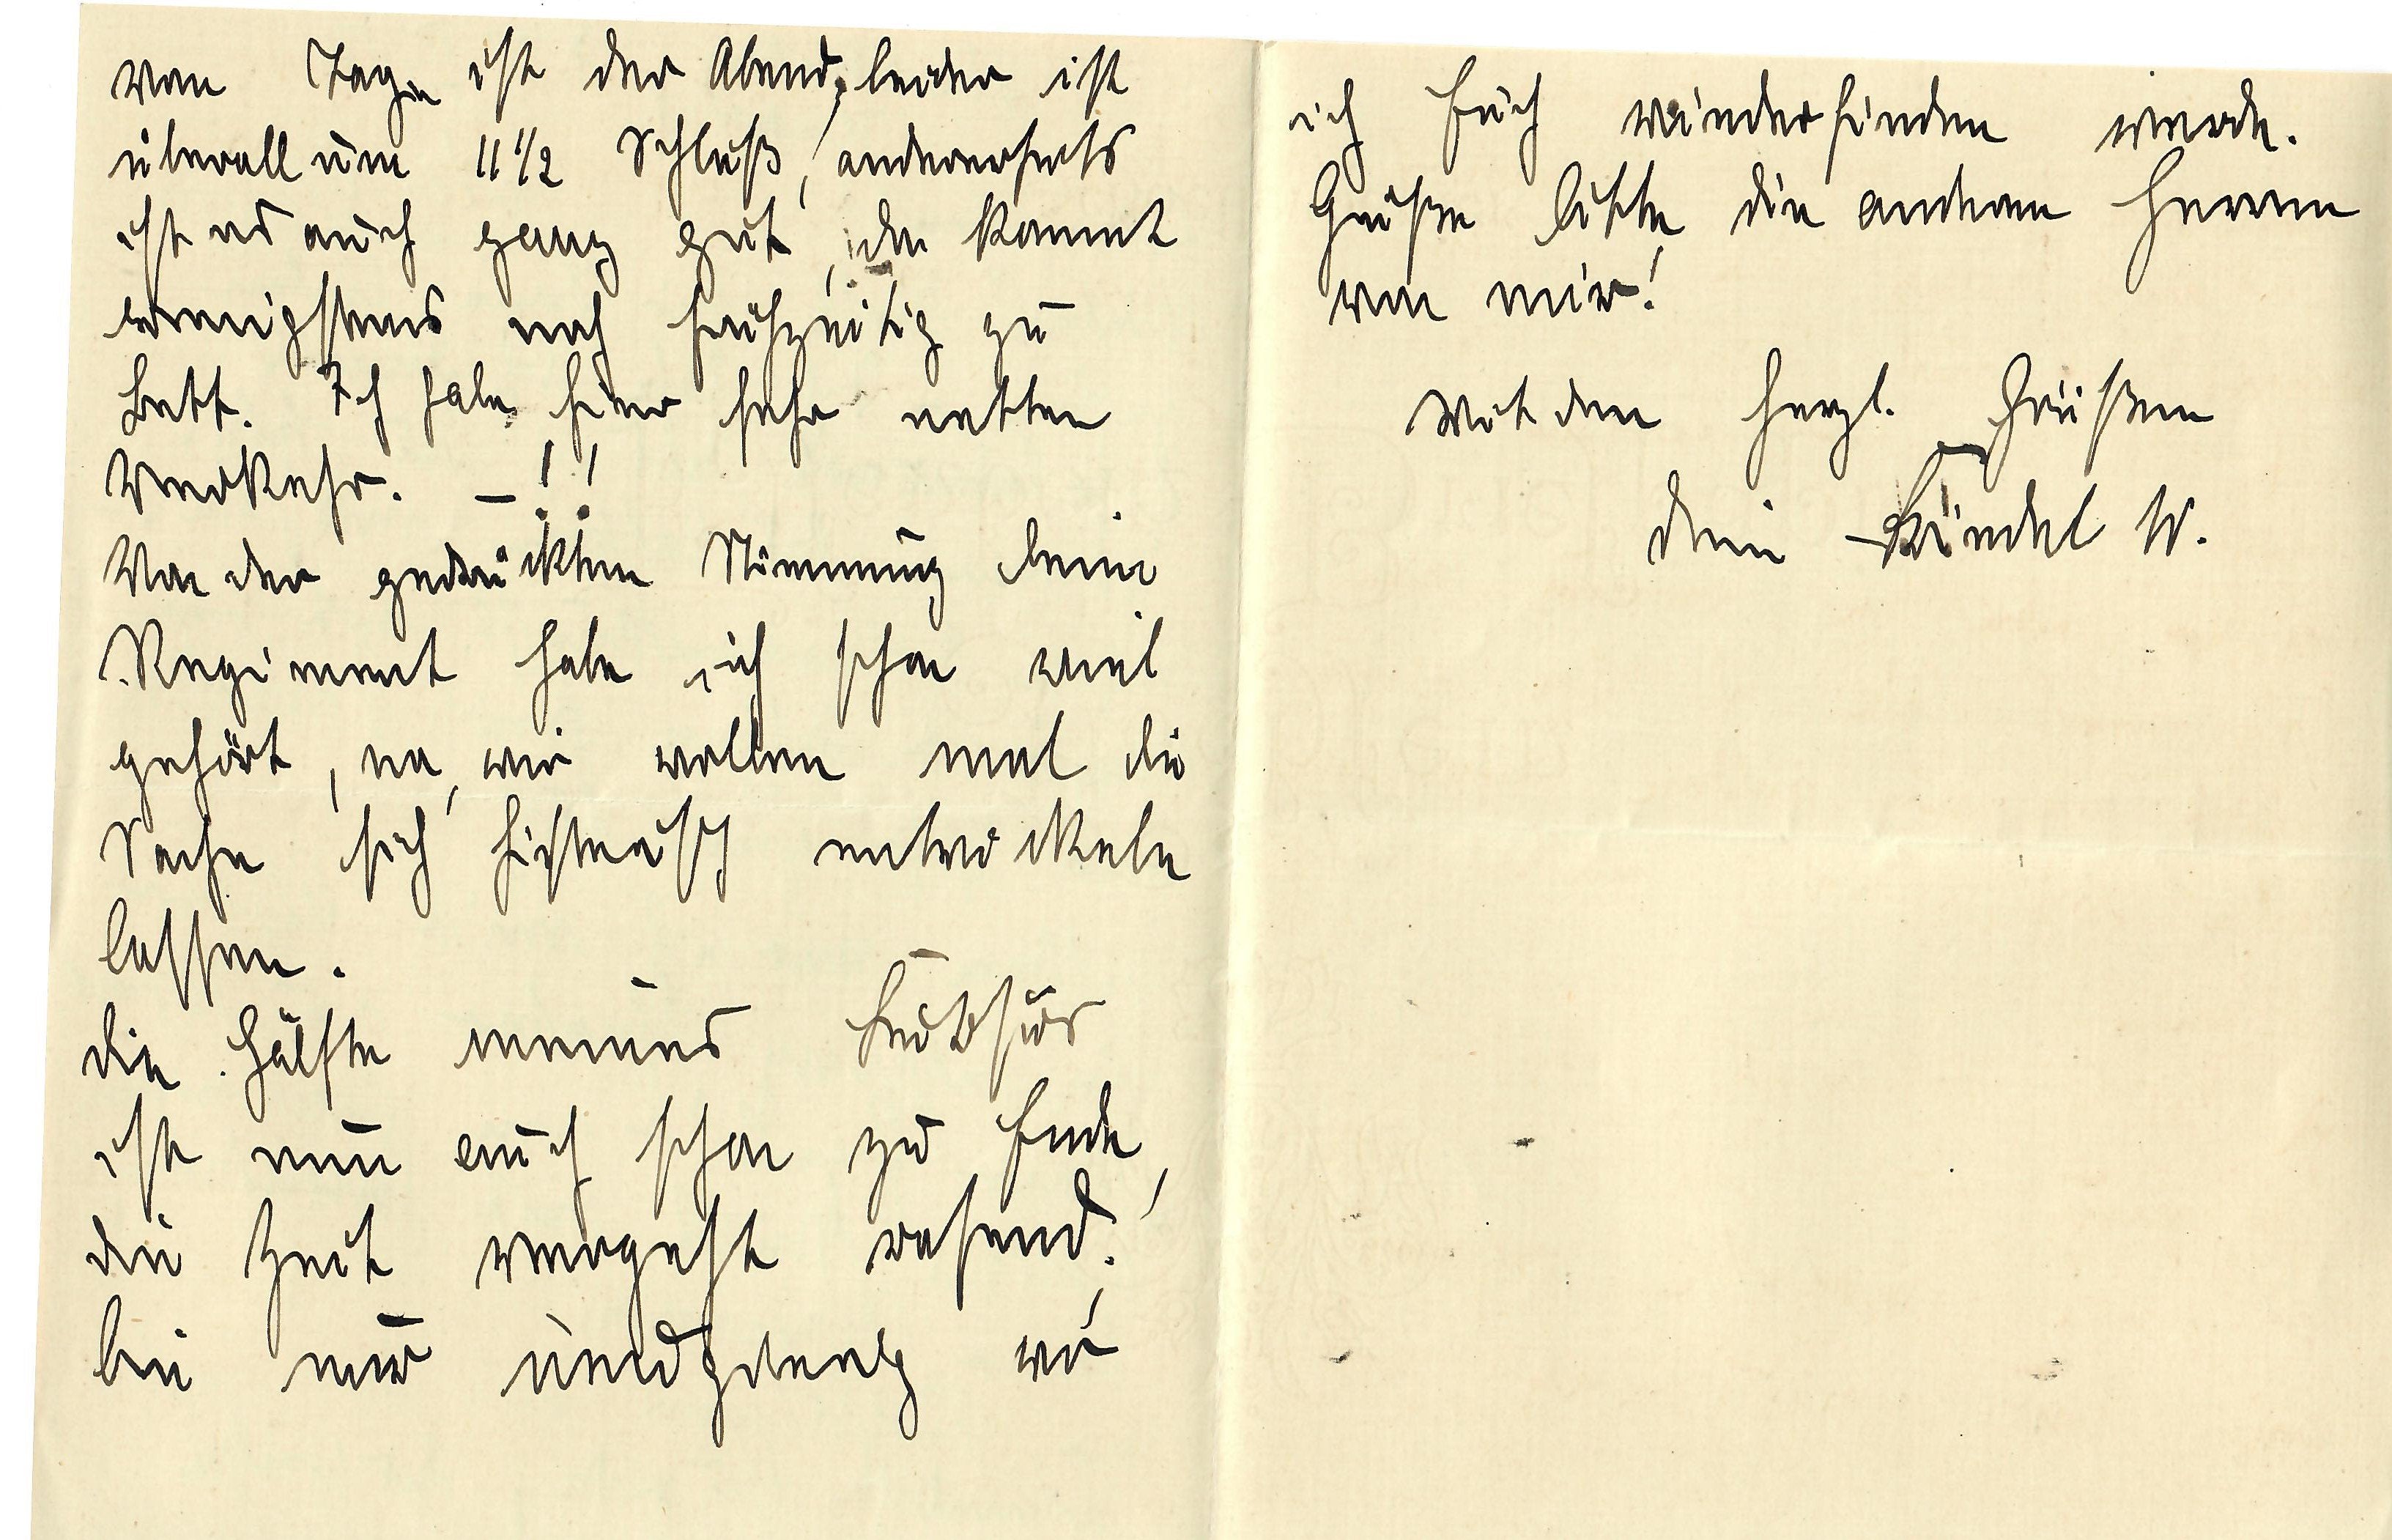 vom Tage ist der Abend, leider ist
überall um 11 1/2 Schluß, andererseits
ist es auch ganz gut, da kommt
wenigstens noch frühzeitig zu
Bett. Ich habe hier sehr netten
Verkehr. – !!
Von der gedrückten Stimmung beim
Regiment habe ich schon viel
gehört, na, wir wollen mal die
Sache sich entwickeln
lassen.
Die Hälfte meines
ist nun auch schon zu Ende,
die Zeit vergeht rasend!
bin nur wo
ich Euch wiederfinden werde.
Grüße bitte die anderen Herren
von mir!
Mit den herzl. Grüßen
Dein W.